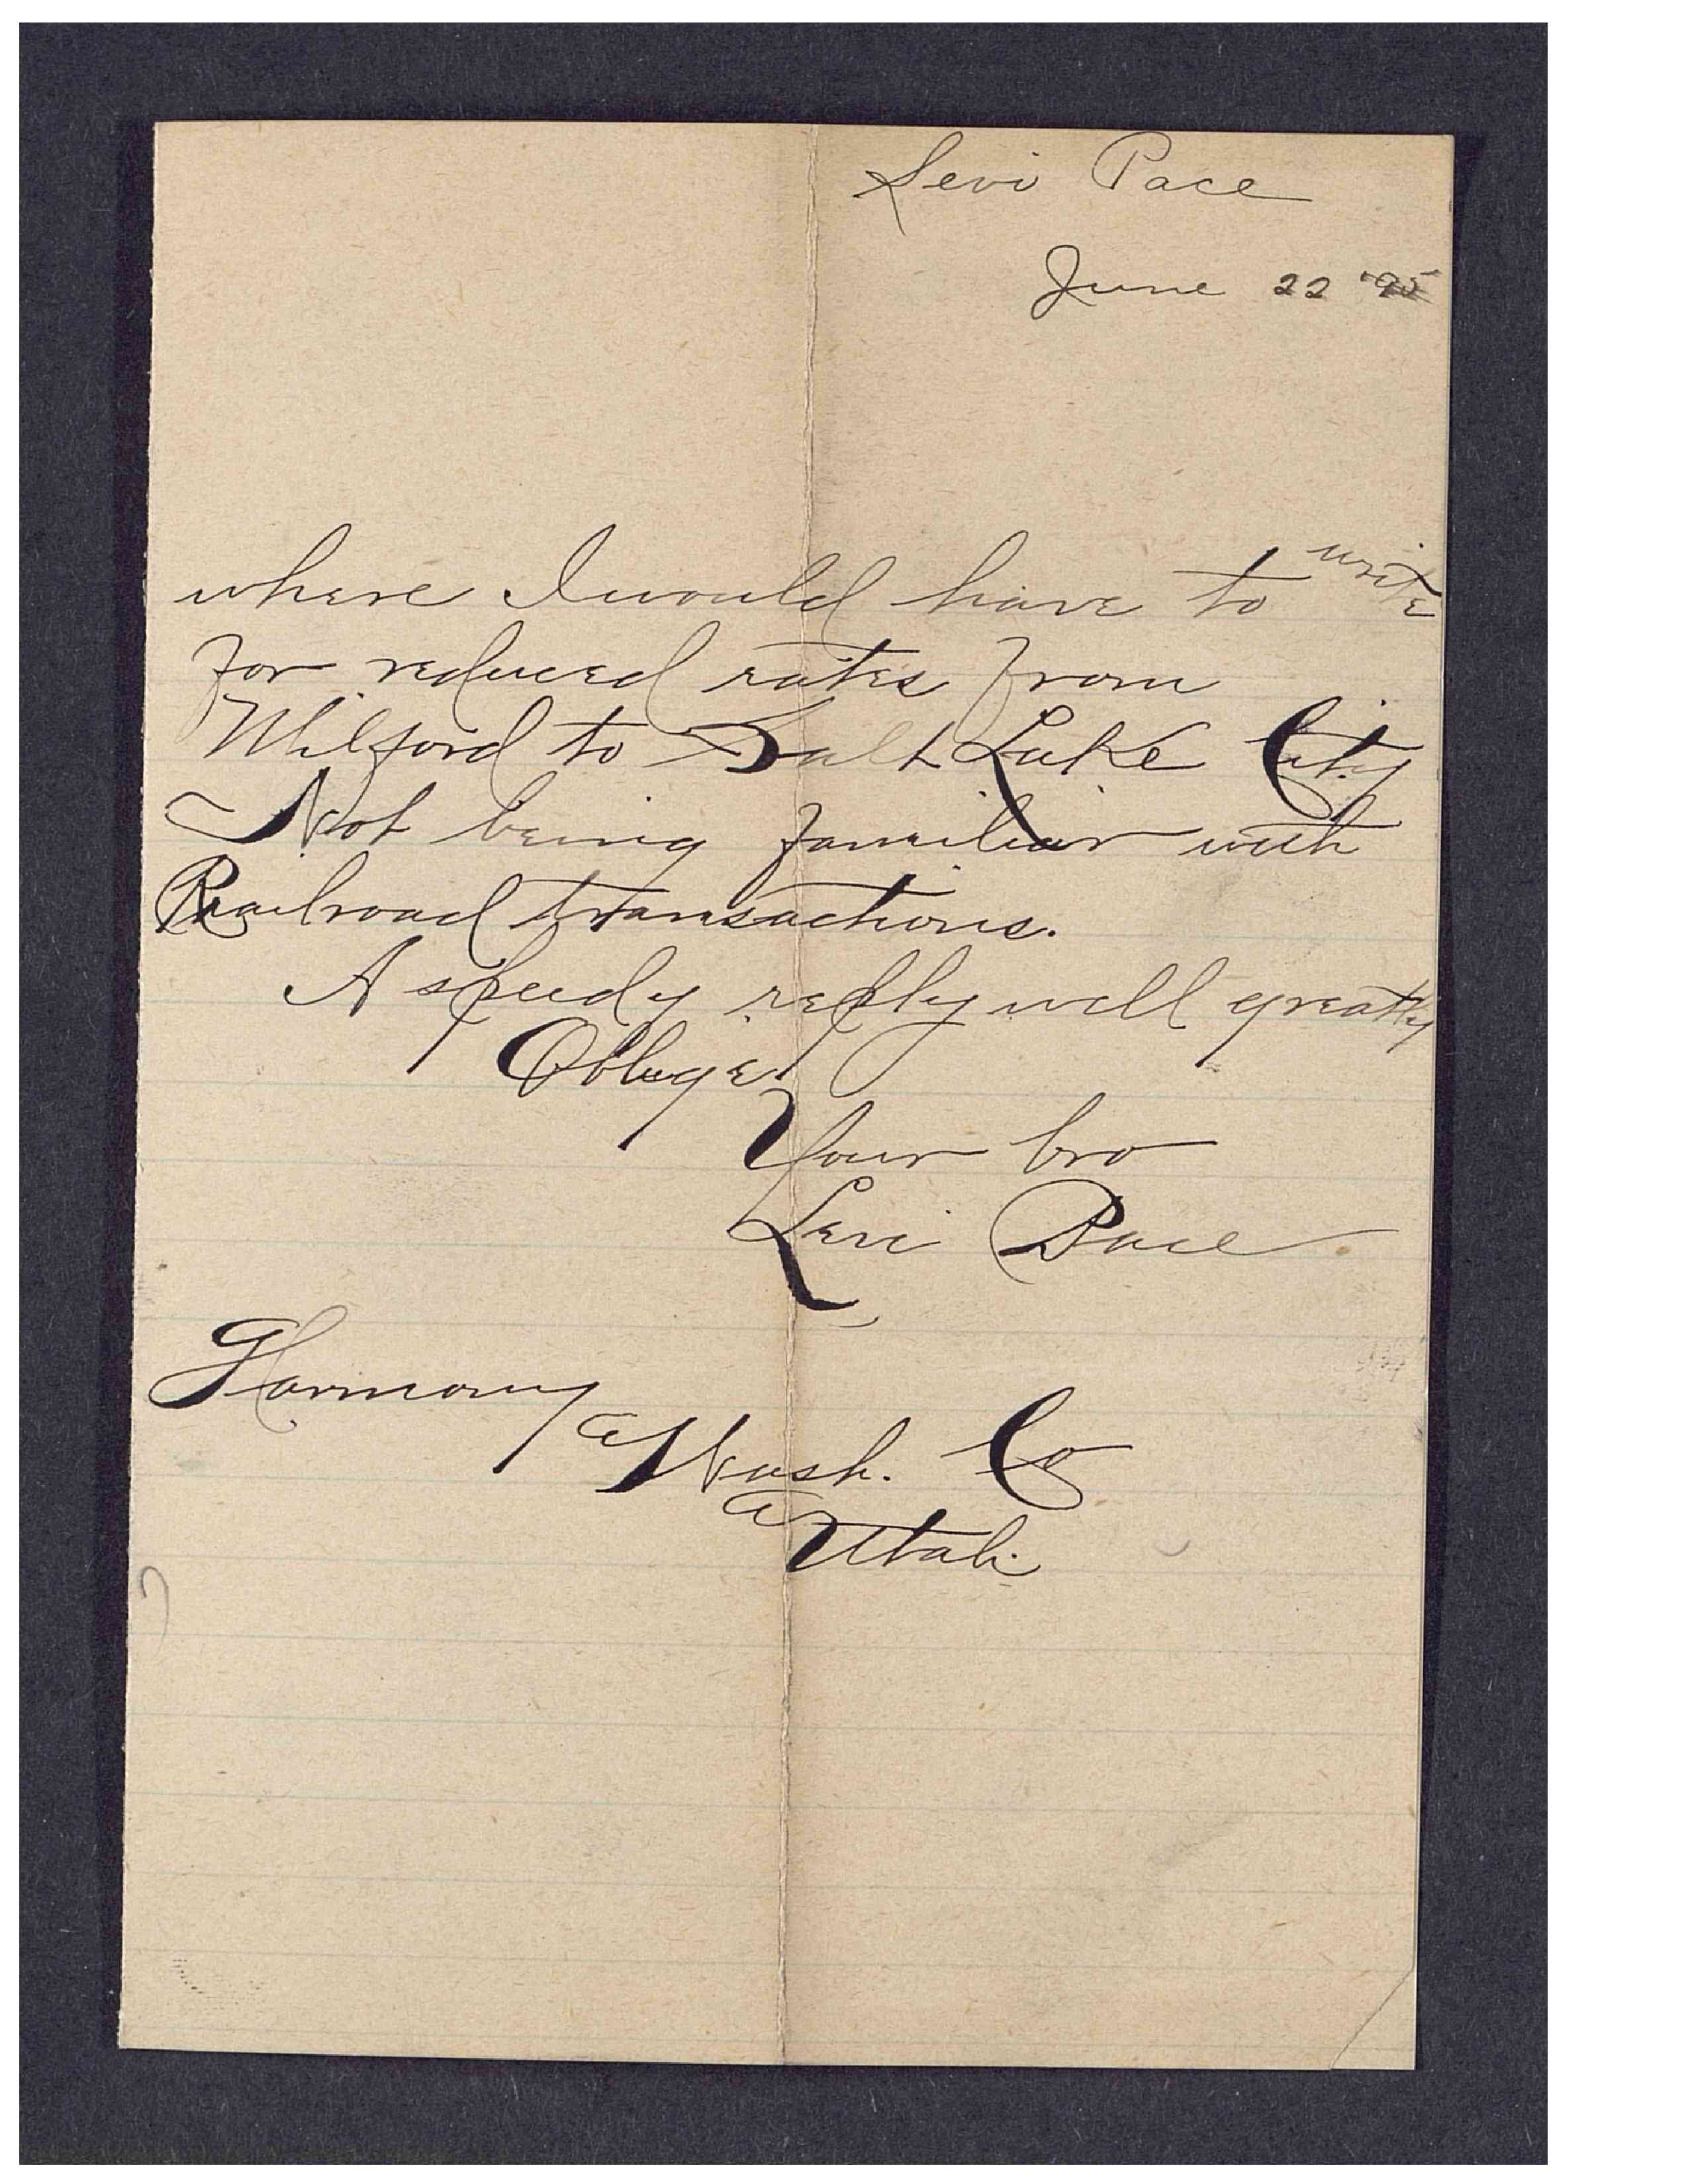 Levi Pace
June 22 '95
where I would have to write
for reduced rates from
Milford to Salt Lake City
Not being familiar with
Railroad transactions.
A speedy reply will greatly
Oblige.
Your bro
Levi Pace
Harmony
Wash. Co
Utah.